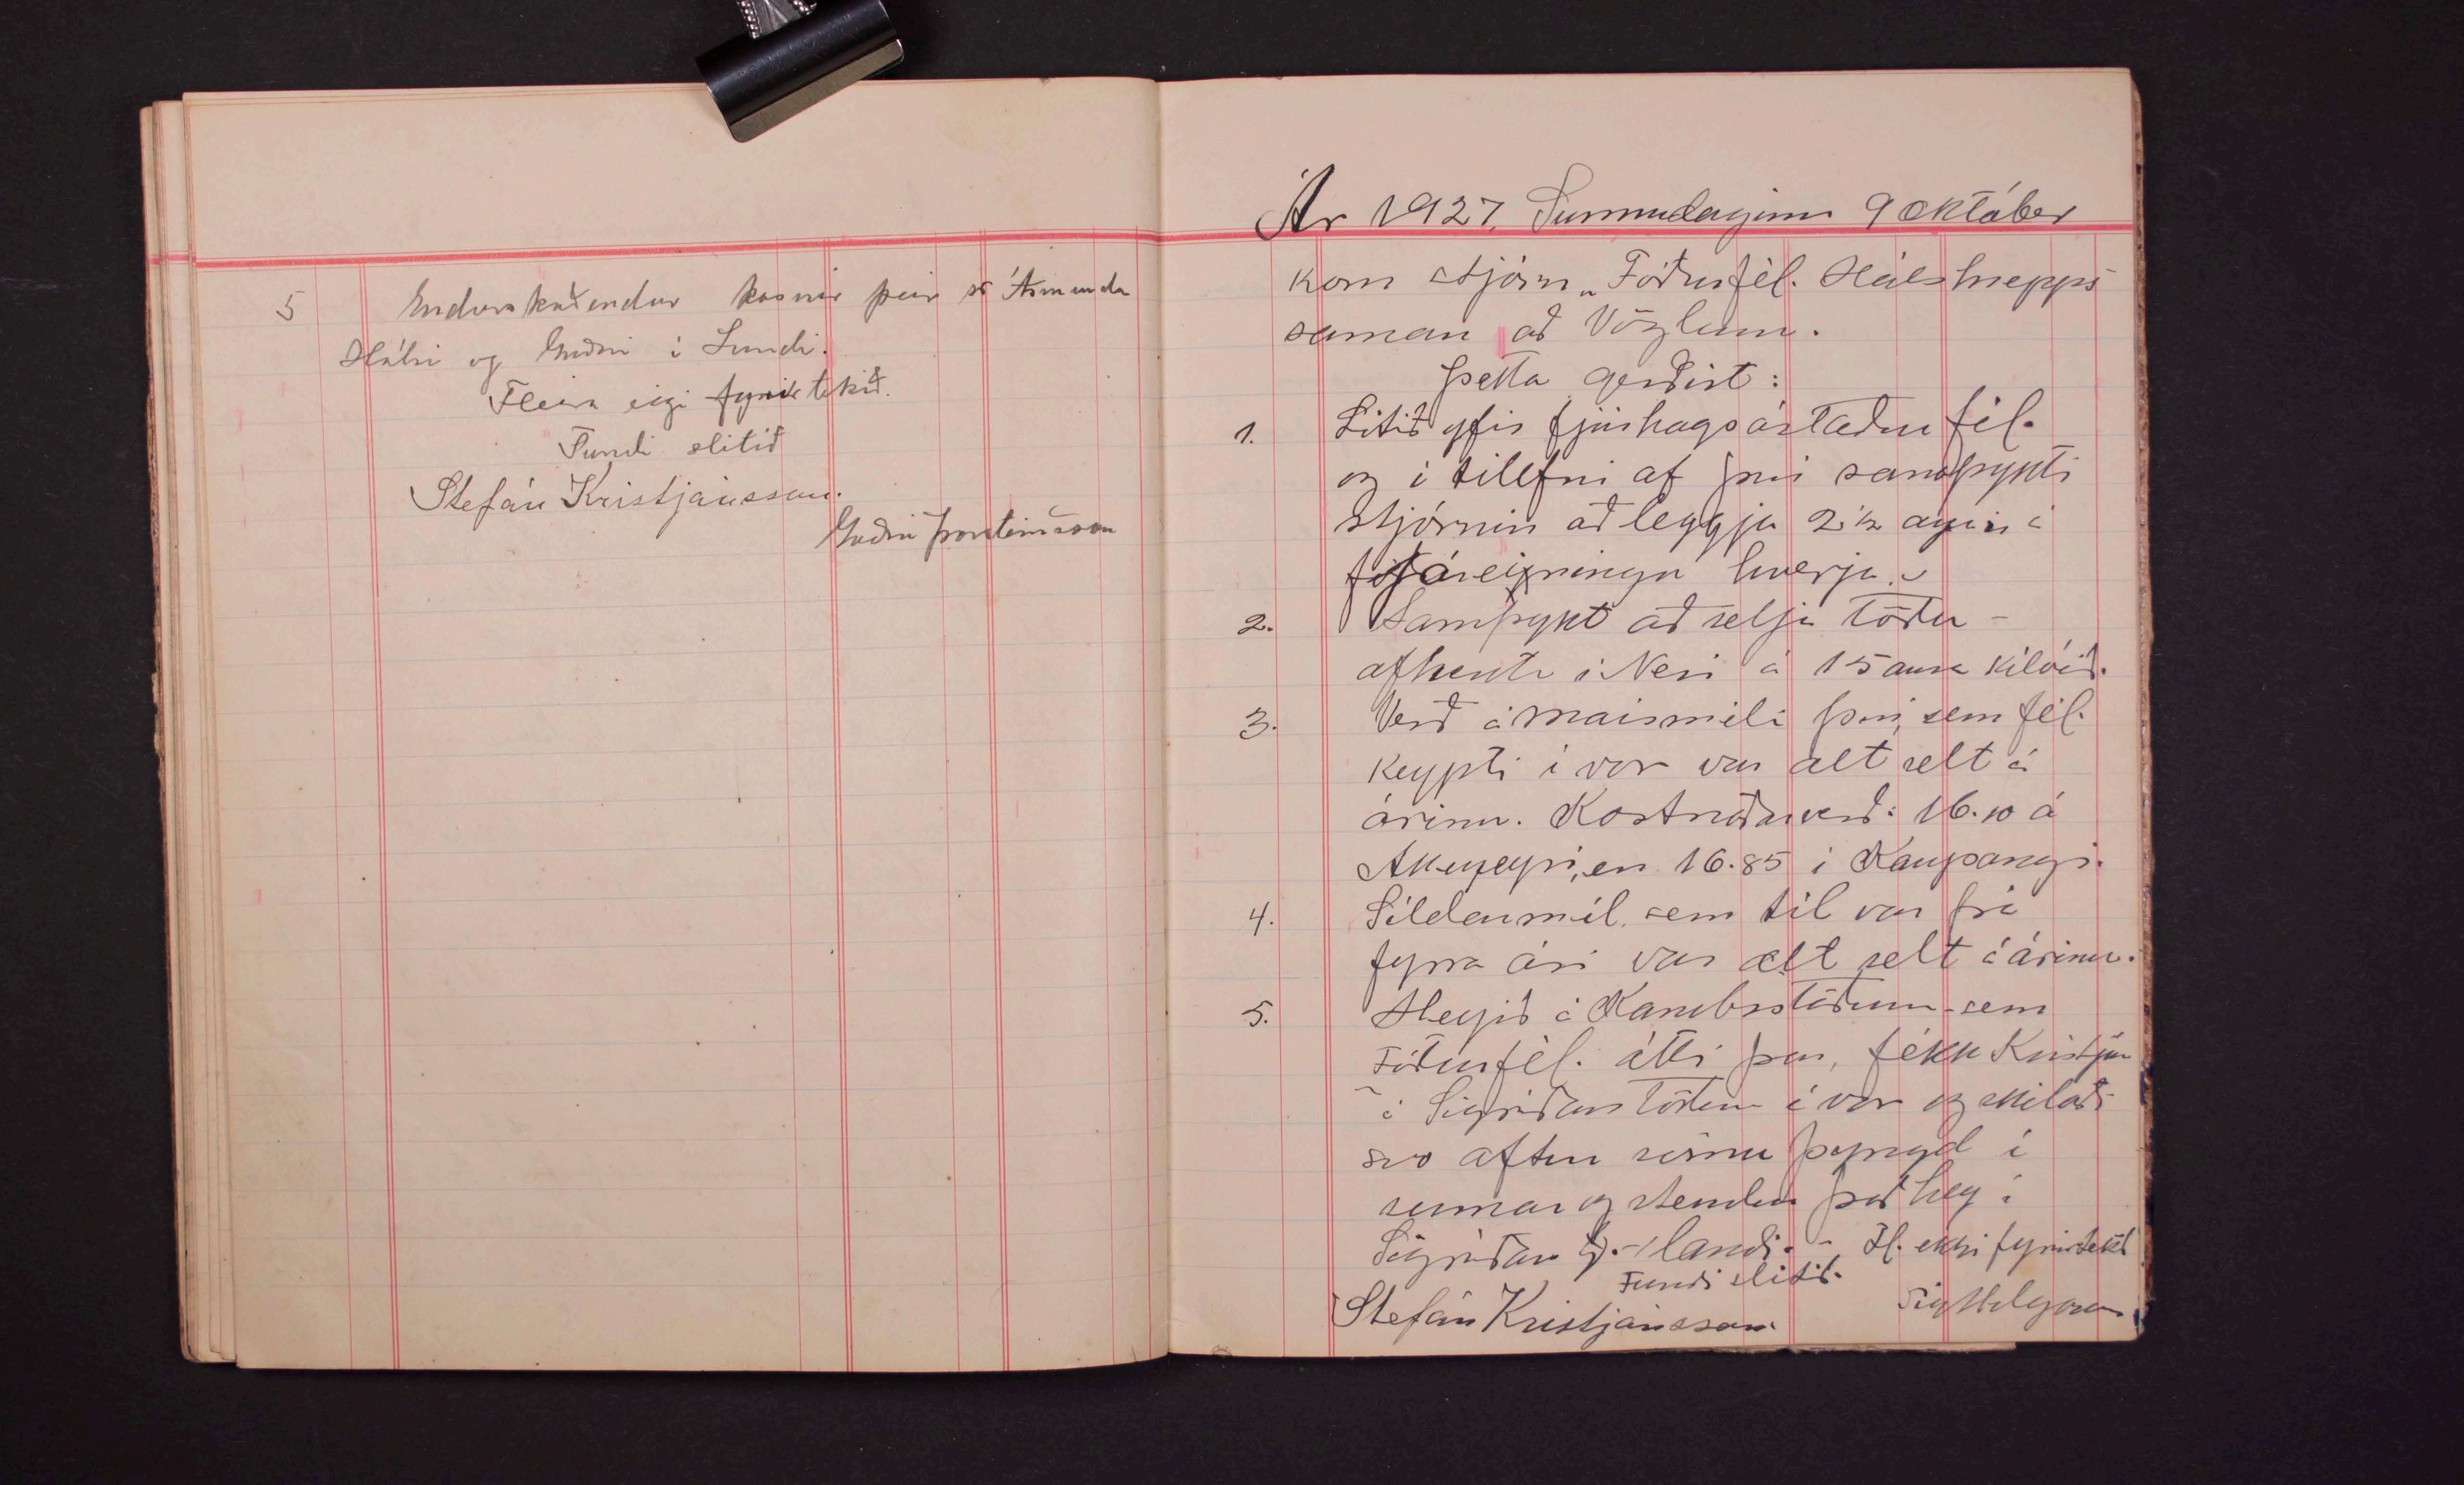 5 Endurskoðendur kosnir þeir sr Ásmundr
Hálsi og Guðni í Lundi.
Fleira eigi fyrir tekið.
Fundi slitið
Stefán Kristjánsson.
Guðni Þorsteinsson
Ár 1927, Sunnudaginn 9 október
kom stjórn „Fóðurfél. Hálshrepps
saman að Vöglum.
Þetta gerðist:
1. Litið yfir fjárhagsástæður fél.
og í tilefni af því samþykti
stjórnin að leggja 2 1/2 eyrir á
hverja.
2. Samþykt að selja töðu -
afhenta í Nesi á 15 aura kílóið.
3. Verð á maisméli því, sem fél.
keypti í vor var alt selt á
árinu. Kostnaðarverð: 16.10 á
Akureyri, en 16.85 í Kaupangi.
4. Síldarmél, sem til var frá
fyrra ári var alt selt á árinu.
5. Heyið á Kambsstöðum - sem
Fóðurfél. átti þar, fékk Kristján
á Sigríðarstöðum í vor og skilaði
svo aftur sömu þyngd í
sumar og stendur það hey í
Sigríðar st.- landi. - Fl. ekki fyrirtekið
Fundi slitið.
Stefán Kristjánsson. Sig Helgason